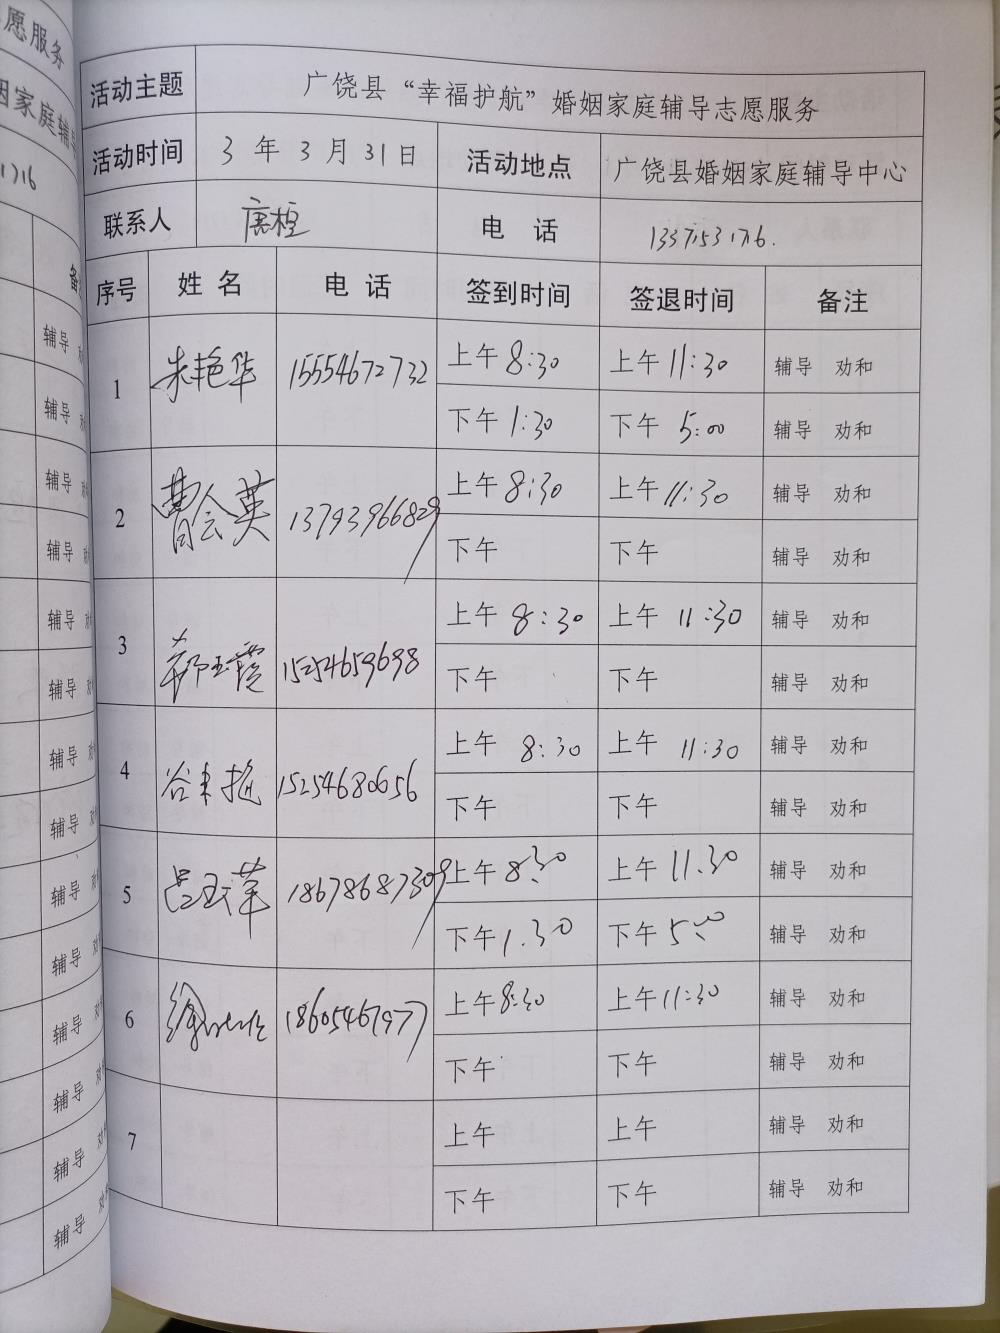 愿服务
姻家庭辅导
1716
备
辅导 劝
辅导 劝
辅导 劝
辅导 劝
辅导 劝
辅导 劝
辅导 劝
辅导 劝
辅导 劝
辅导 劝
辅导 劝
辅导 劝
辅导 劝
辅导 劝
活动主题 广饶县“幸福护航”婚姻家庭辅导志愿服务
活动时间 3 年 3 月 31 日 活动地点 广饶县婚姻家庭辅导中心
联系人 电 话
序号 姓 名 电 话 签到时间 签退时间 备注
1 朱艳华 15554672732 上午 8:30 上午 11:30 辅导 劝和
下午 1:30 下午 5:00 辅导 劝和
2 曹会英 13793966829 上午 8:30 上午 11:30 辅导 劝和
下午 下午 辅导 劝和
3 15254659698 上午 8:30 上午 11:30 辅导 劝和
下午 下午 辅导 劝和
4 15254680656 上午 8:30 上午 11:30 辅导 劝和
下午 下午 辅导 劝和
5 18678687309 上午 8:30 上午 11.30 辅导 劝和
下午 1.30 下午 5:00 辅导 劝和
6 18605467977 上午 8:30 上午 11:30 辅导 劝和
下午 下午 辅导 劝和
7 上午 上午 辅导 劝和
下午 下午 辅导 劝和